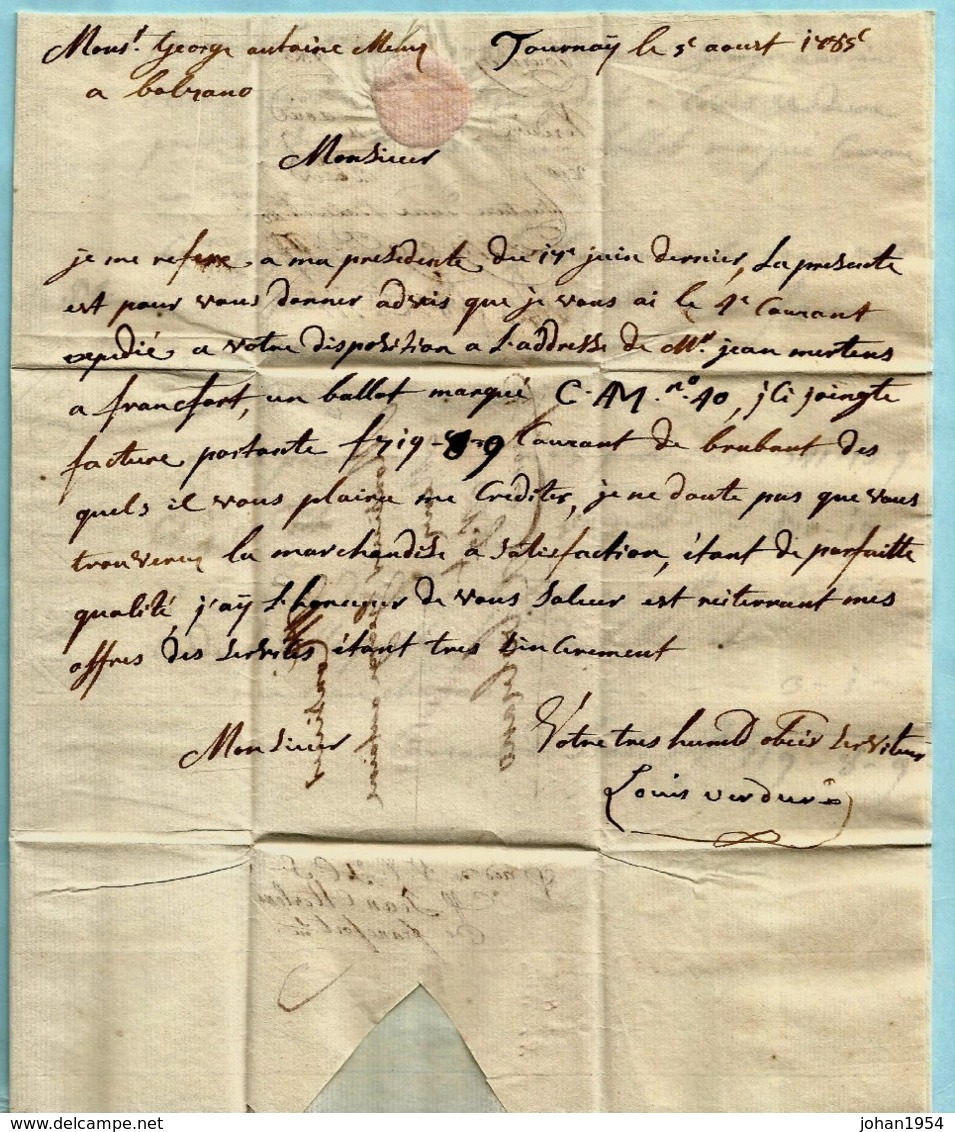 Monsr. George antoine Tournaÿ le 5e aoust
a bolzano
Monsieur
je me refere a ma presedente du 17e juin dernier, La presente
est pour vous donner advis que je vous ai le 4e Courant
expedié a votre disposition a L'addresse de Mr. jean mertens
a francfort, un ballot marqué C. AM. no. 40, jCi jointe
facture portante f 719-8-9 Courant de brabant des
quels il vous plaira me Crediter, je ne doute pas que vous
trouverez la marchandise a satisfaction, étant de parfaitte
qualité, j'aÿ L'honneur de vous saluer est reiterrant mes
offres des services étant tres sincerement
Monsieur Votre tres humb obeis serviteur
Louis verdure
delcampe.net
johan1954